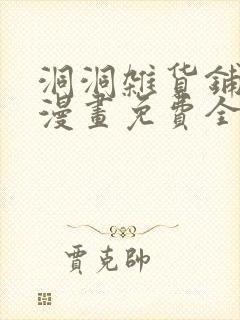 洞洞雜貨鋪
漫畫免費全
賈克帥